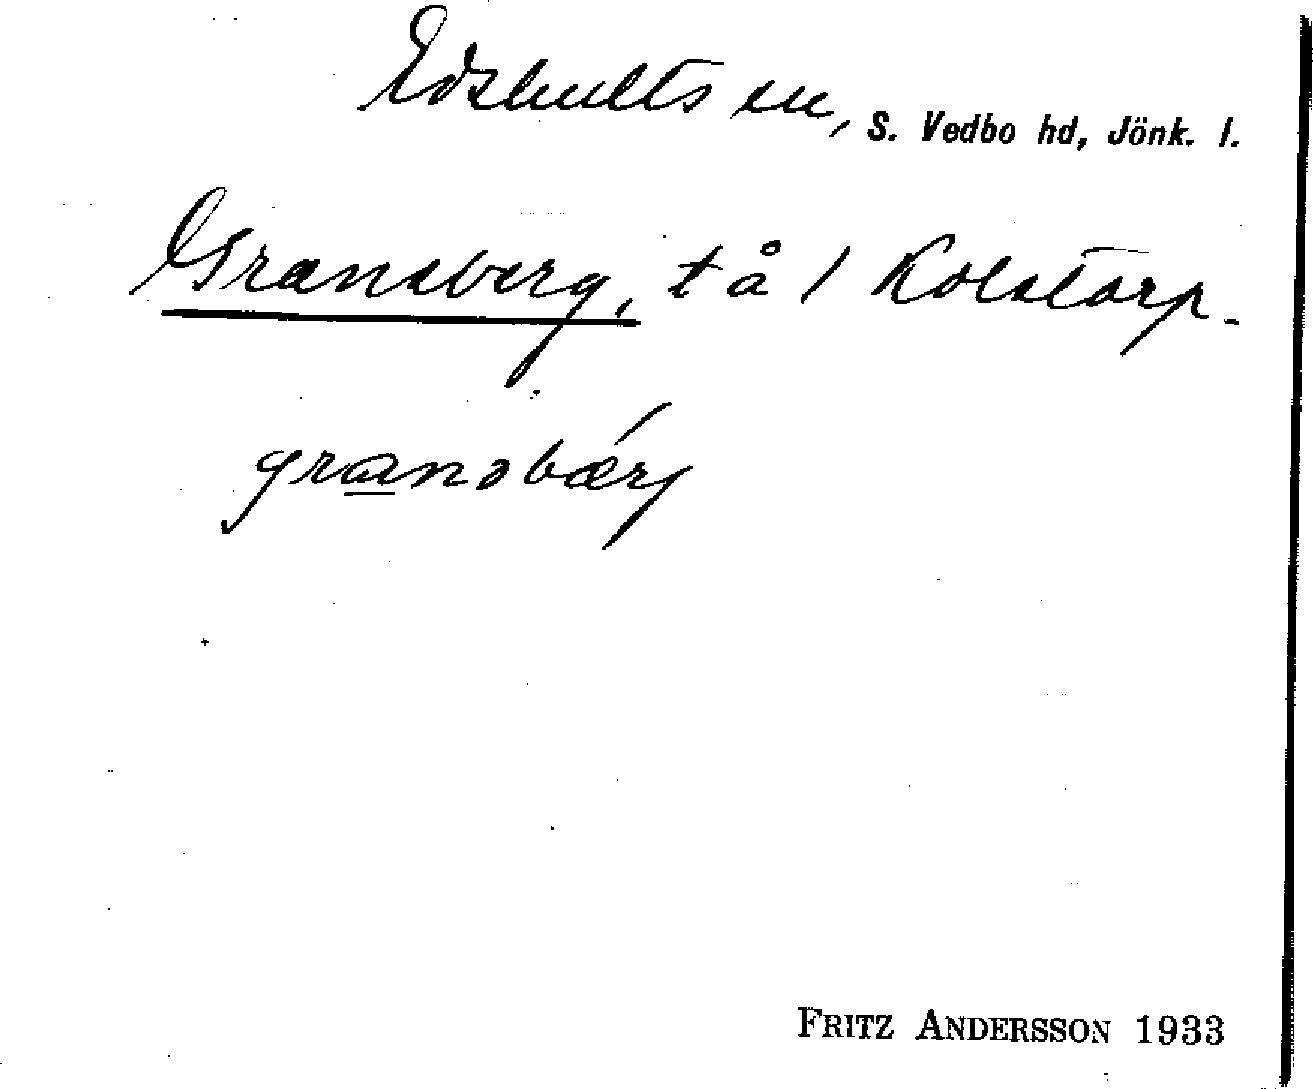 Edshults sn, S. Vedbo hd, Jönk. l.
Gransberg, t å 1 Kolstorp.
gransbærj
FRITZ ANDERSSON 1933